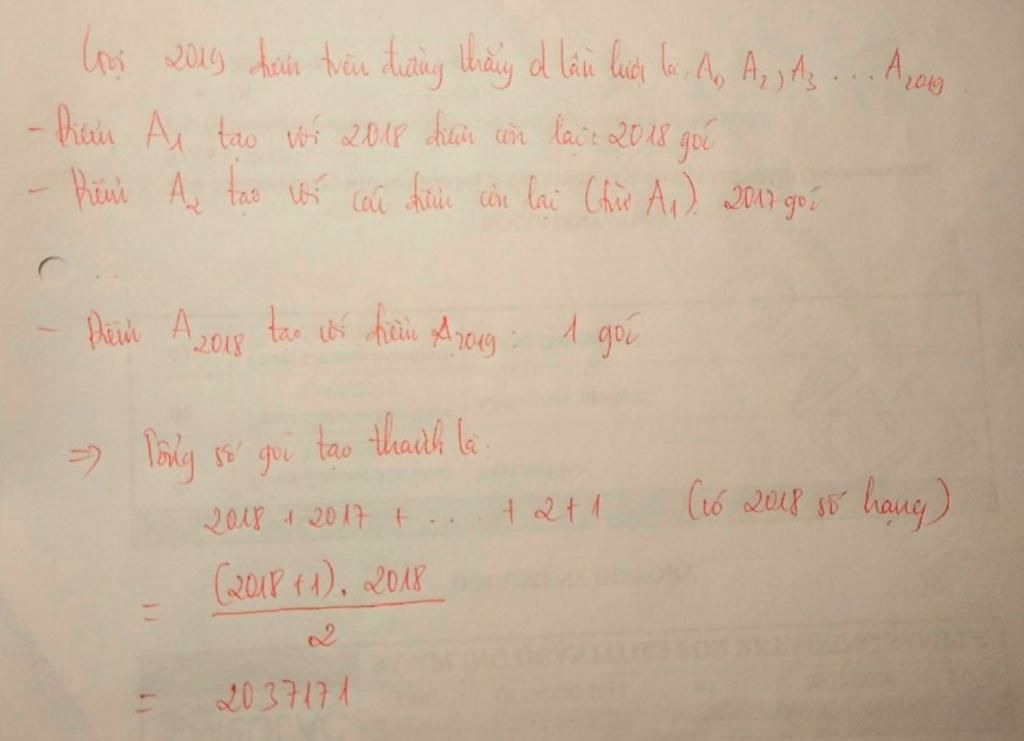 Gọi 2019 điểm trên đường thẳng d lần lượt là A1, A2, A3 ... A2019.
- Điểm A1 tạo với 2018 điểm còn lại: 2018 góc
- Điểm A2 tạo với các điểm còn lại (trừ A1): 2017 góc
...
- Điểm A2018 tạo với điểm A2019: 1 góc
=> Tổng số góc tạo thành là:
2018 + 2017 + ... + 2 + 1 (có 2018 số hạng)
= (2018 + 1) . 2018 / 2
= 2037171